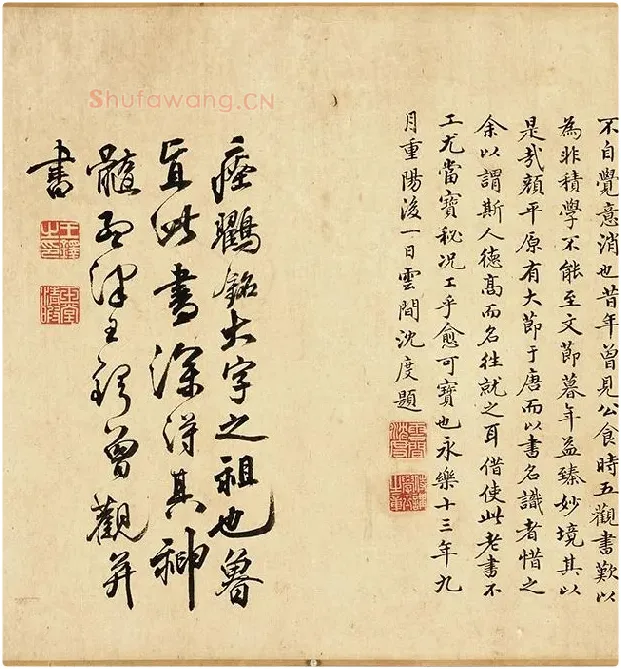 Shufawang.CN
不自覺意消也昔年曾見公食時五觀書歎以
為非積學不能至文節暮年益臻妙境其以
是哉顏平原有大節于唐而以書名識者惜之
余以謂斯人德高而名往就之耳借使此老書不
工尤當寶秘况工乎愈可寶也永樂十三年九
月重陽後一日雲間沈度題
瘞鸖銘大字之祖也魯
直此書深得其神
髓孟津王鐸曾觀并
書
王鐸之印